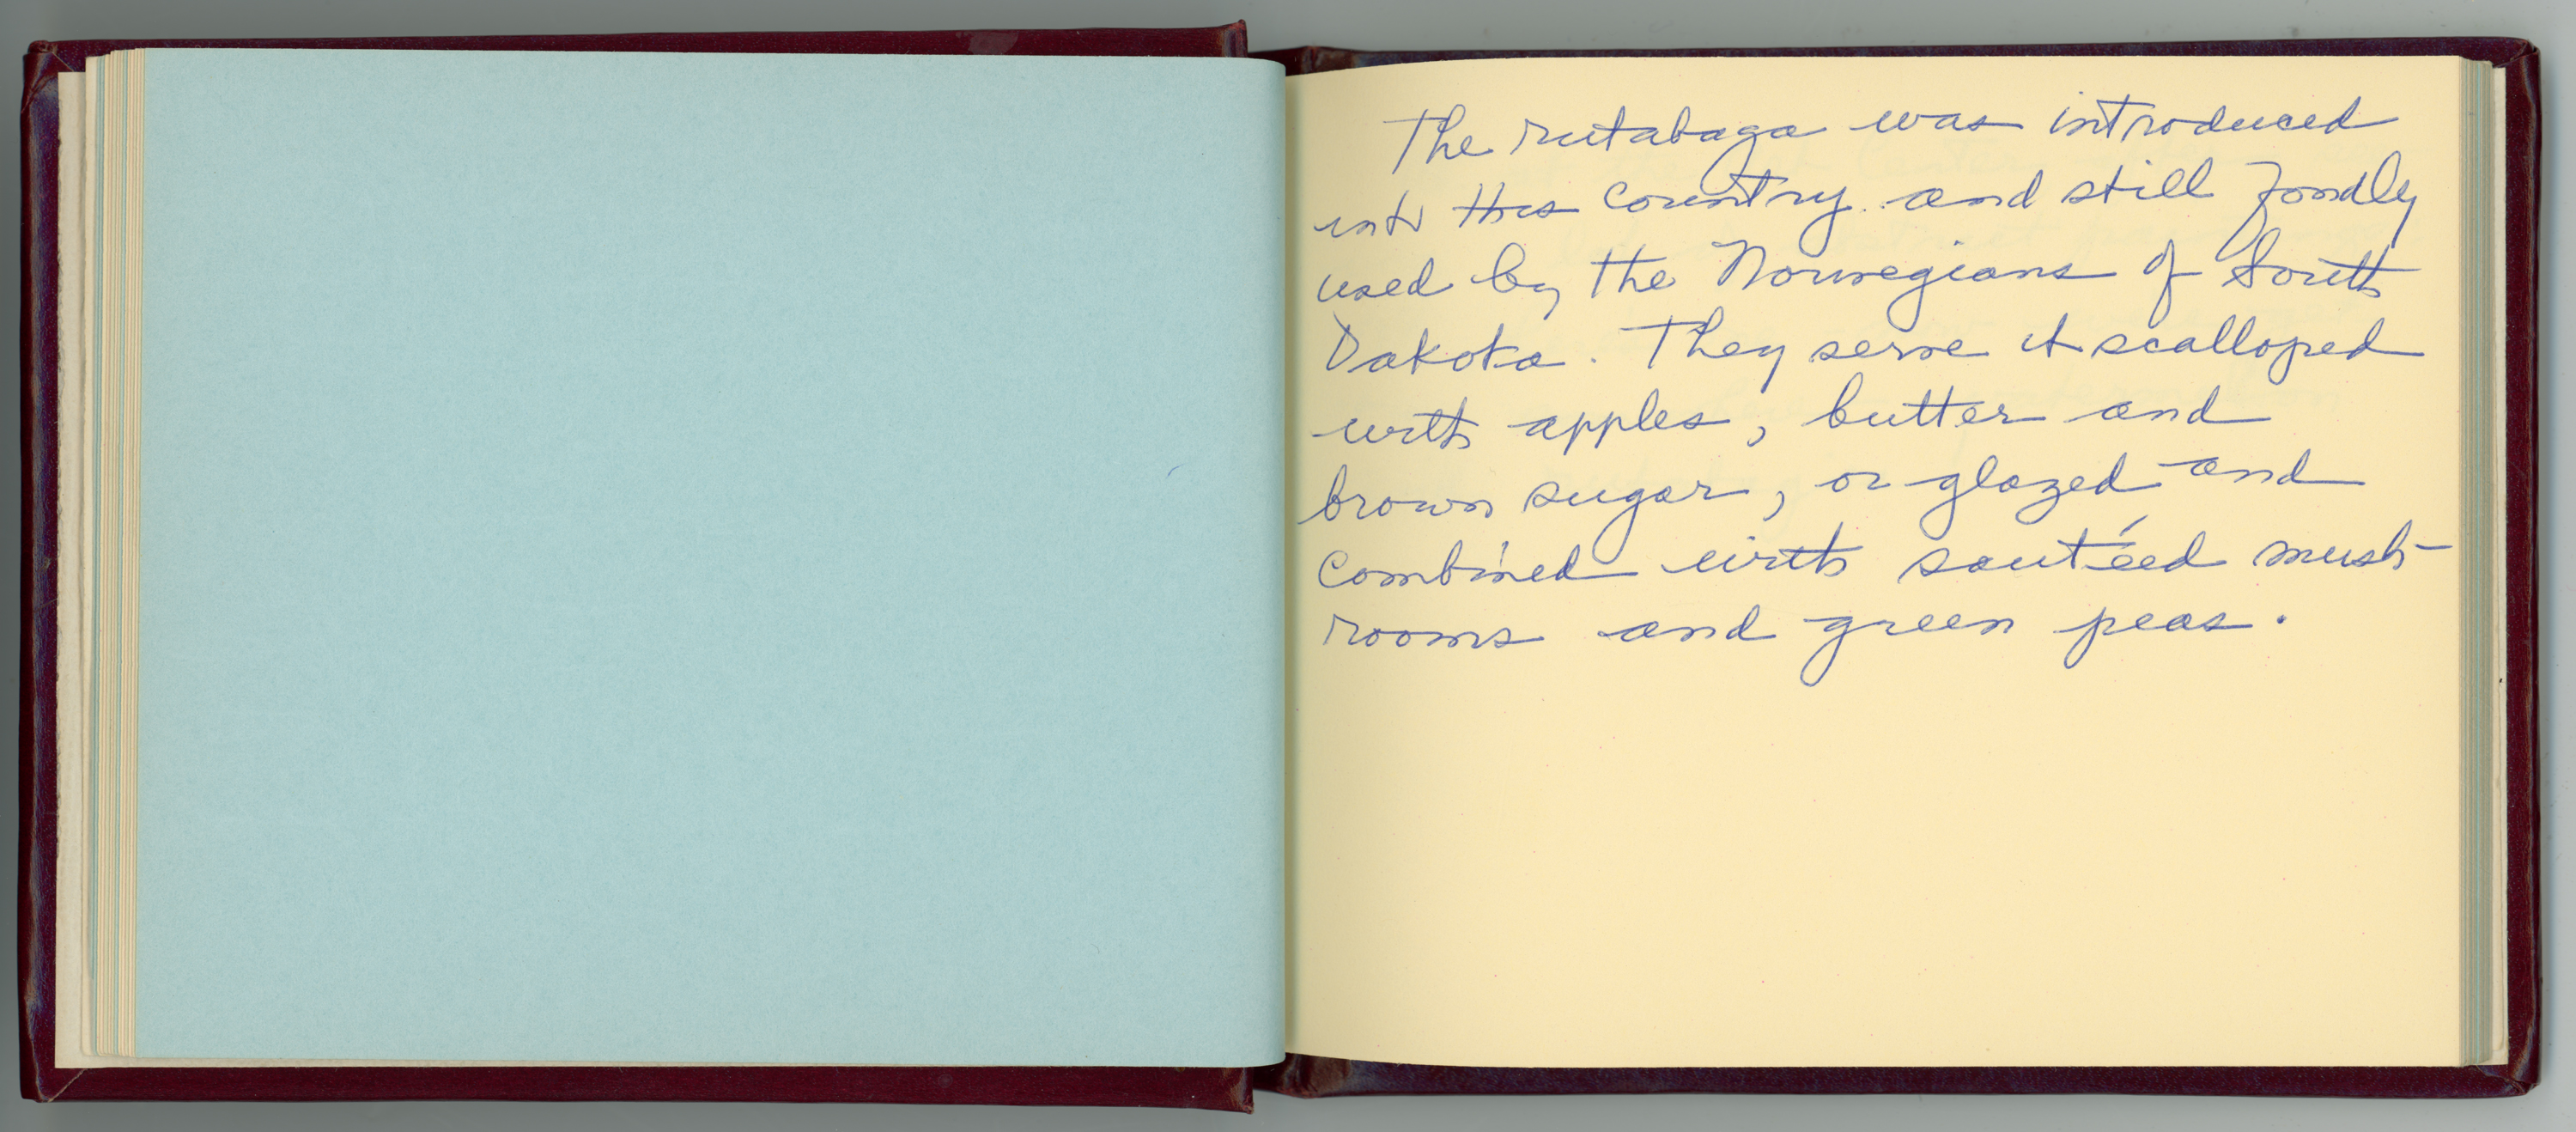 The rutabaga was introduced
into this country and still fondly
used by the Norwegians of South
Dakota. They serve it scalloped
with apples, butter and
brown sugar, or glazed and
combined with sautéed mush-
rooms and green peas.